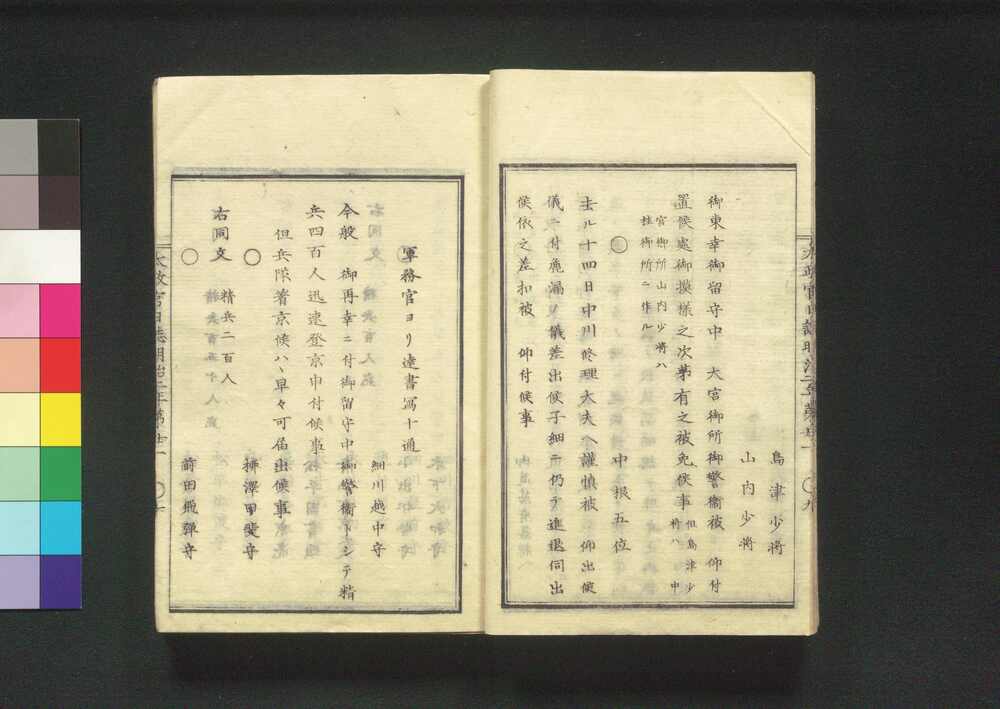 島津少将
山内少将
御東幸御留守中　大宮御所御警衛被　仰付
置候処御摸様之次第有之被免候事
但島津少
将ハ　中
宮御所山内少将ハ
桂御所ニ作ル
○　中根五位
去ル十四日中川修理大夫ヘ謹慎被　仰出候
儀ニ付麁漏ノ儀差出候子細ニ仍テ進退伺出
候依之差扣被　仰付候事
太政官日誌明治二年第廿一　○九
○軍務官ヨリ達書写十通
細川越中守
今般　御再幸ニ付御留守中御警衛トシテ精
兵四百人迅速登京申付候事
但兵隊著京候ハヽ早々可届出候事
○　柳澤甲斐守
右同文　精兵二百人
○　前田飛弾守
太政官日誌明治二年第廿一